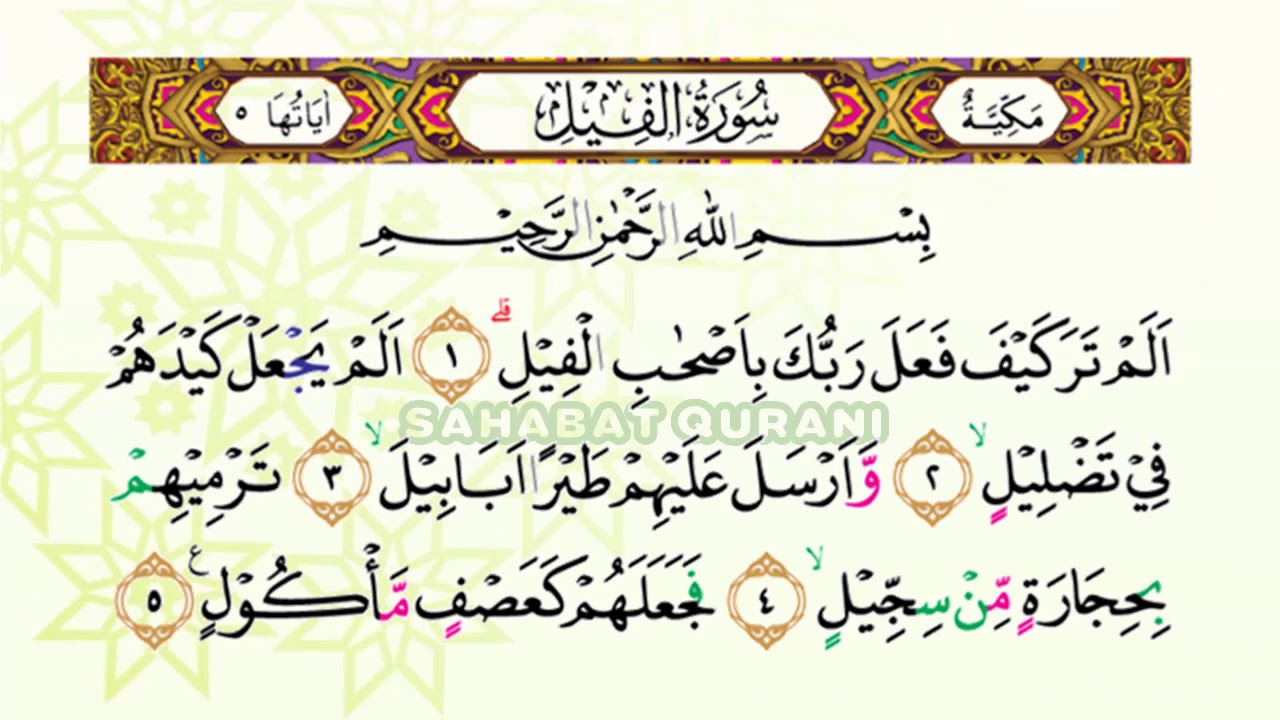 مَكِّيَّةٌ سُوْرَةُ الْفِيْلِ اٰيَاتُهَا ٥
بِسْمِ اللّٰهِ الرَّحْمٰنِ الرَّحِيْمِ
اَلَمْ تَرَ كَيْفَ فَعَلَ رَبُّكَ بِاَصْحٰبِ الْفِيْلِۗ ١ اَلَمْ يَجْعَلْ كَيْدَهُمْ
SAHABAT QURANI
فِيْ تَضْلِيْلٍۙ ٢ وَّاَرْسَلَ عَلَيْهِمْ طَيْرًا اَبَابِيْلَۙ ٣ تَرْمِيْهِمْ
بِحِجَارَةٍ مِّنْ سِجِّيْلٍۙ ٤ فَجَعَلَهُمْ كَعَصْفٍ مَّأْكُوْلٍࣖ ٥